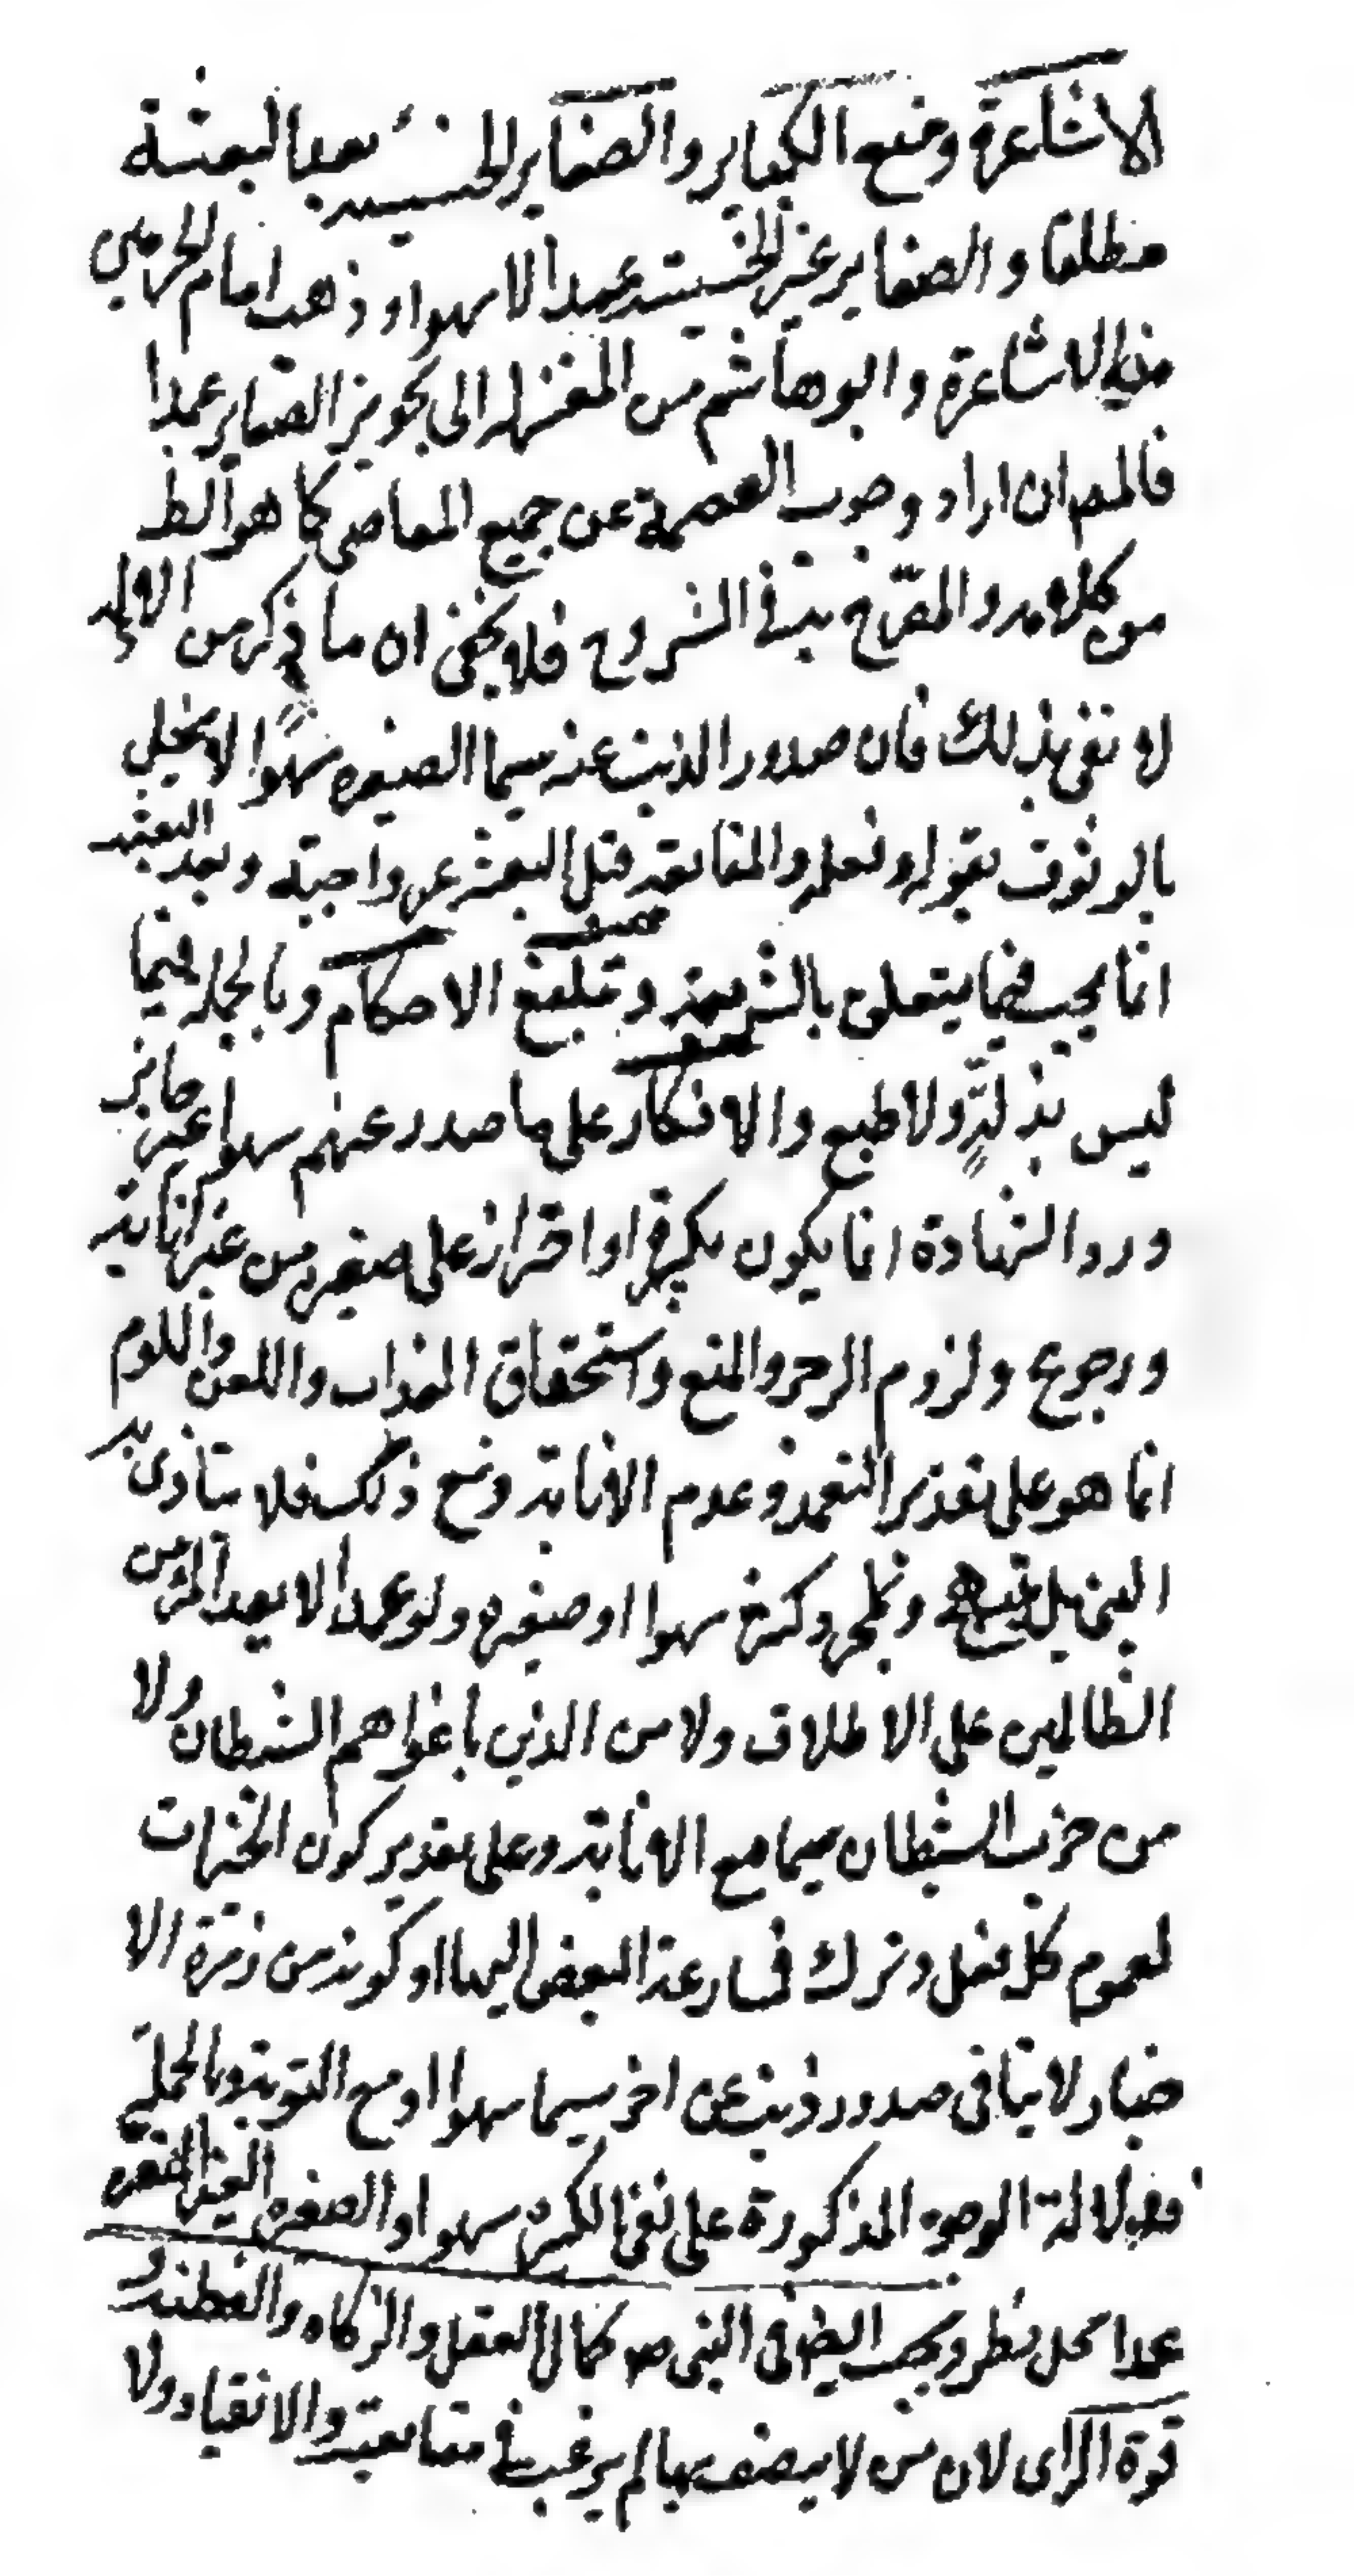 الاشاعرة ومنع الكباير والصغاير الخسيسة بعد البعثة
مطلقا والصغاير غير الخسيسة عمدا لا سهوا وذهب امام الحرمين
من الاشاعرة وابو هاشم من المعتزلة الى تجويز الصغاير عمدا
فالمص ان اراد وجوب العصمة عن جميع المعاصى كما هو الظ
من كلامه والمصرح به فى الشروح فلا يخفى ان ما ذكر من الادلة
لا تفى بذلك فان صدور الذنب عنه سيما الصغيرة سهوا لا يخل
بالوثوق بقوله وفعله والمتابعة قبل البعثة غير واجبة وبعد البعثة
انما يجب فيما يتعلق بالشريعة وتبليغ الاحكام وبالجملة فيما
ليس بذلة ولا طبع والانكار على ما صدر عنهم سهوا غير جايز
ورد الشهادة انما يكون بكبيرة او اقرار على صغيرة من غير انابة
ورجوع ولزوم الزجر والمنع واستحقاق العذاب واللعن واللوم
انما هو على تقدير التعمد وعدم الانابة ومع ذلك فلا يتأذى به
النبى بل يبتهج وبمجرد كبيرة سهوا او صغيرة ولو عمدا لا يعد المرء من
الظالمين على الاطلاق ولا من الذين اغواهم الشيطان ولا
من حزب الشيطان سيما مع الانابة وعلى تقدير كون الخيرات
لعموم كل فعل وترك فمسارعة البعض اليها او كونه من زمرة الا
خيار لا ينافى صدور ذنب عن اخر سيما سهوا او مع التوبة وبالجملة
فدلالة الوجوه المذكورة على نفى الكبيرة سهوا والصغيرة الغير المنفرة
عمدا محل نظر ويجب ايضا فى النبى ص كمال العقل والزكاء والفطنة و
قوة الراى لان من لا يتصف بها لم يرغب فى متابعته والانقياد ولا